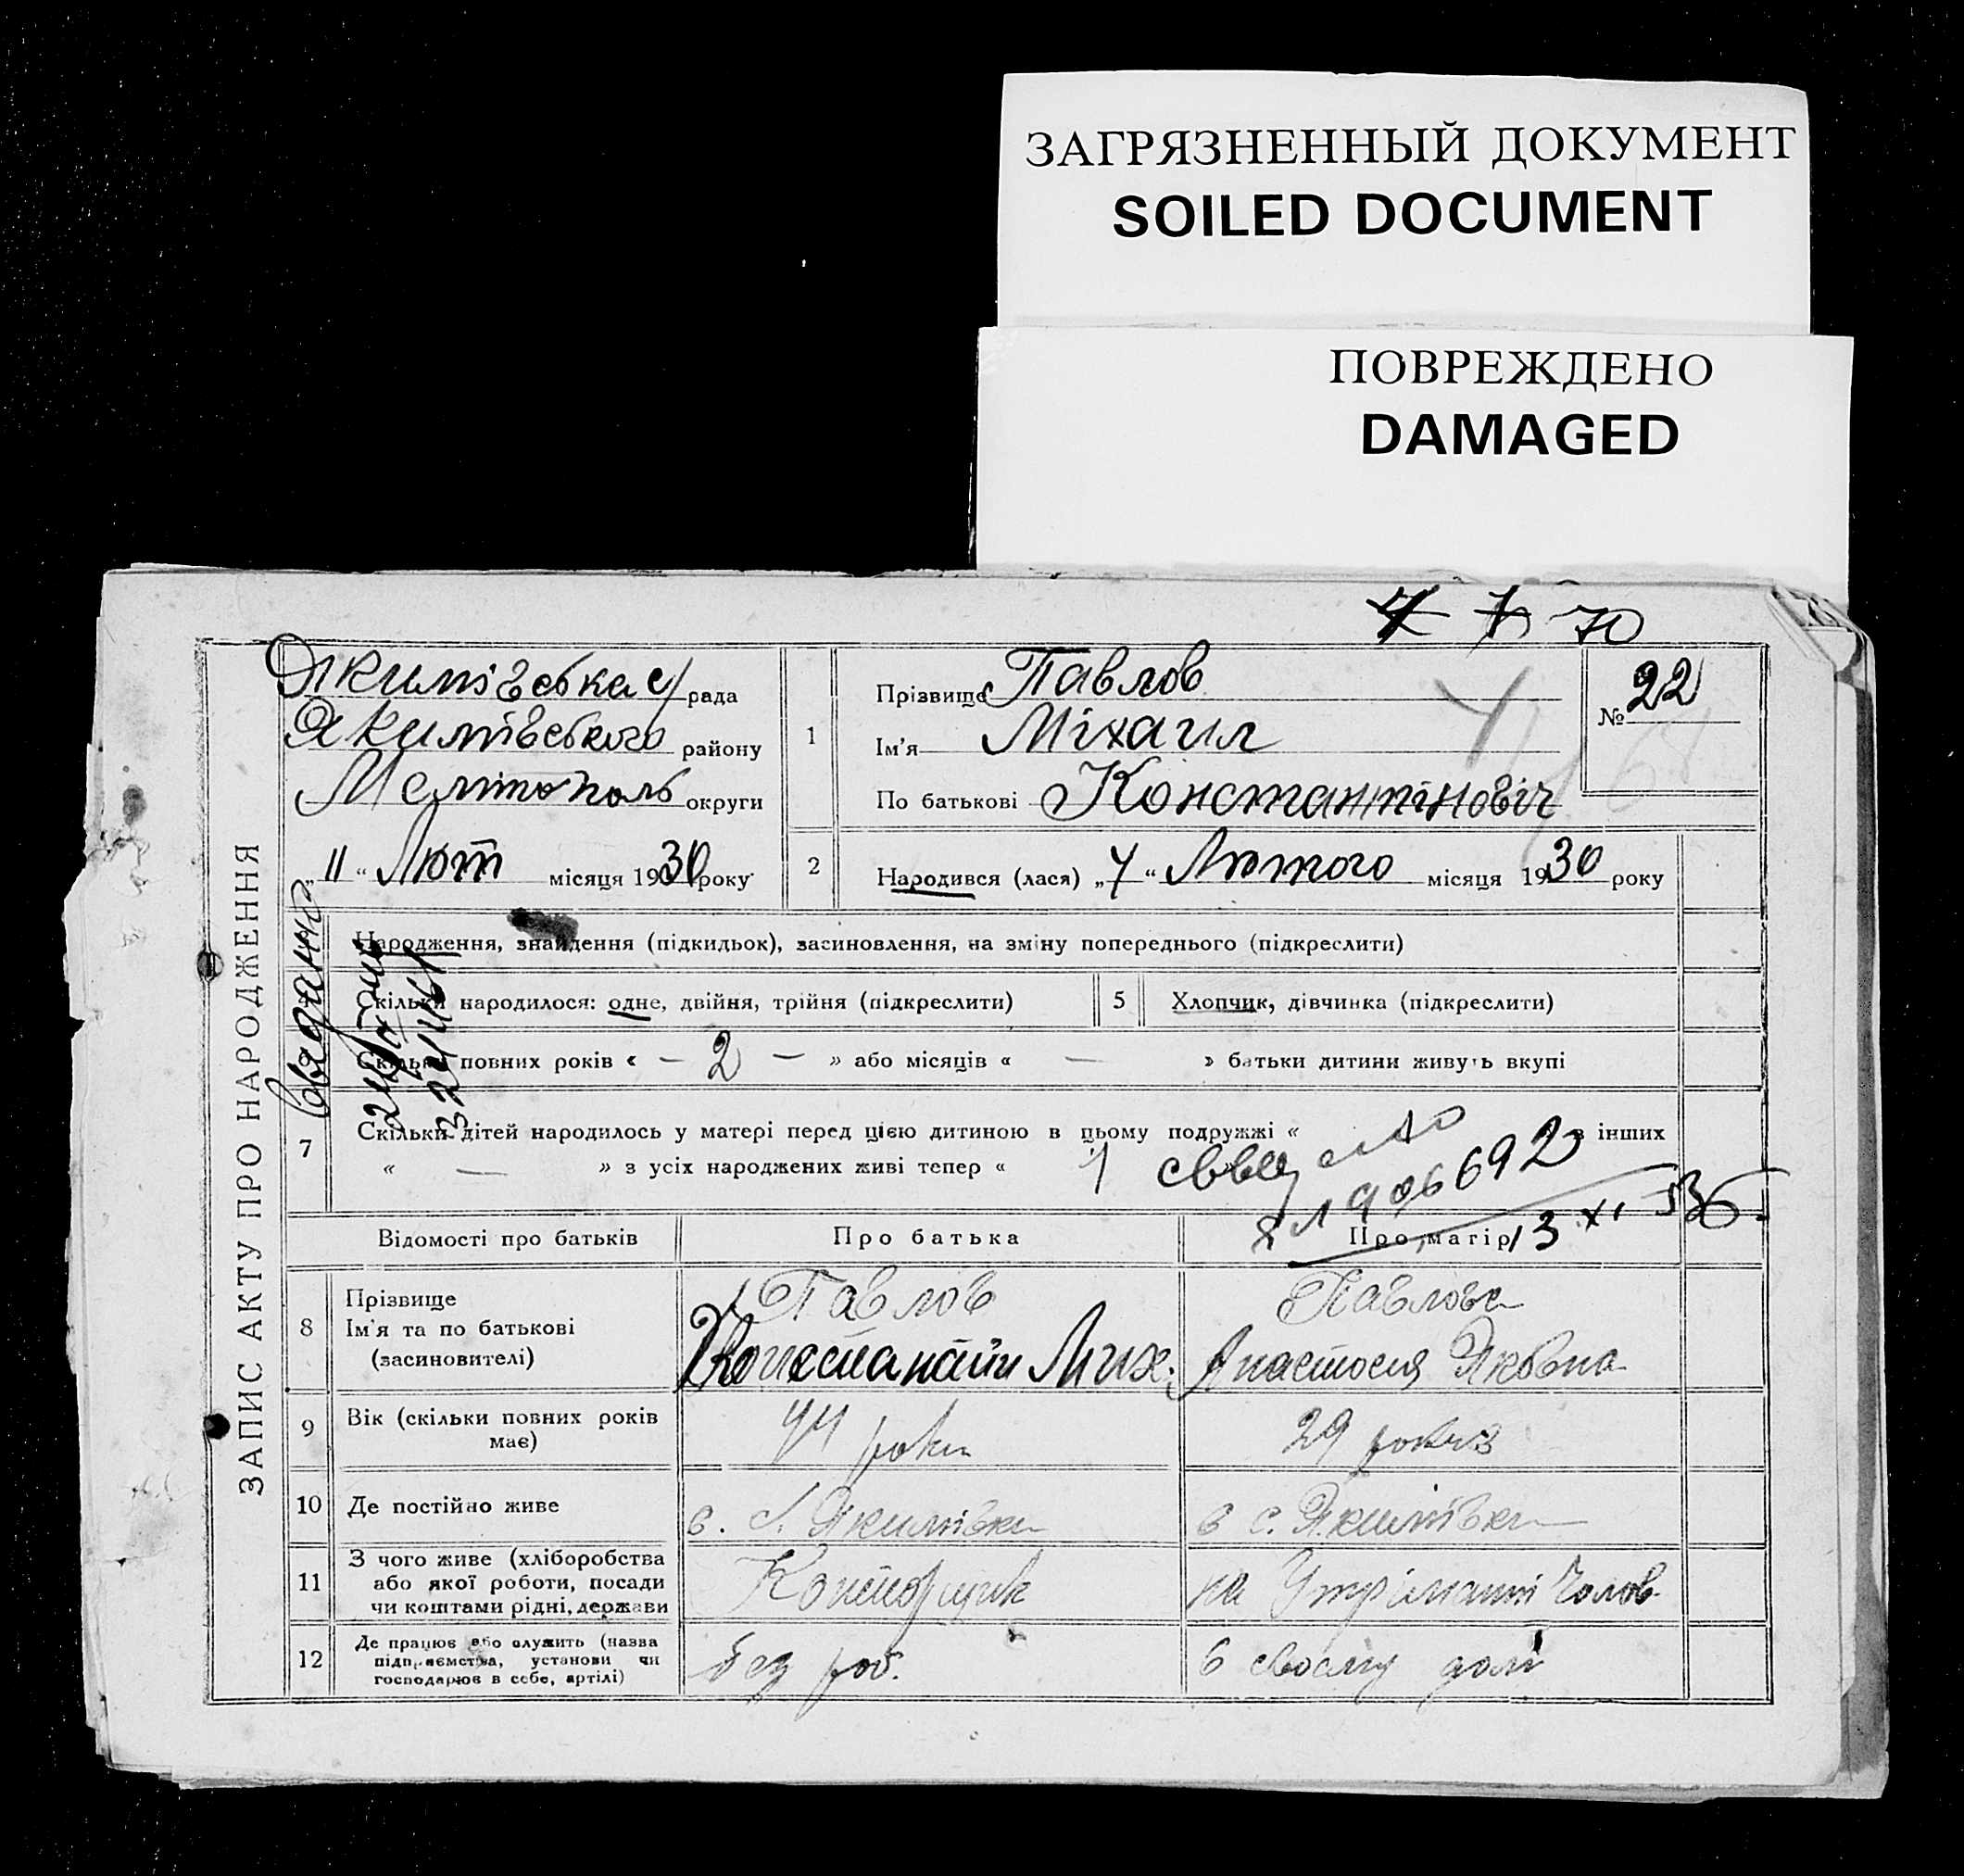 ЗАГРЯЗНЕННЫЙ ДОКУМЕНТ
SOILED DOCUMENT
ПОВРЕЖДЕНО
DAMAGED
70
ЗАПИС АКТУ ПРО НАРОДЖЕННЯ
Якимівська с/рада
Якимівського району
Мелітополь округи
„11“ Лют місяця 1930 року
1
Прізвище Павлов
Ім'я Міхаил
По батькові Константіновіч
№ 22
2 Народився (лася) „4“ Лютого місяця 1930 року
Народження, знайдення (підкидьок), засиновлення, на зміну попереднього (підкреслити)
Скільки народилося: одне, двійня, трійня (підкреслити)
5 Хлопчик, дівчинка (підкреслити)
Скільки повних років « — 2 — » або місяців « — » батьки дитини живуть вкупі
7 Скільки дітей народилось у матері перед цією дитиною в цьому подружжі « в інших
« — » з усіх народжених живі тепер « 1
1906692
13 XI
Відомості про батьків
Про батька
Про матір
8 Прізвище
Ім'я та по батькові
(засиновителі)
Павлов
Константин Мих.
Павлова
Анастасия Яковна
9 Вік (скільки повних років
має)
44 роки
29 років
10 Де постійно живе
в с. Якимівки
в с. Якимівки
11 З чого живе (хліборобства
або якої роботи, посади
чи коштами рідні, держави
Конторщик
на Утріманні Чолов.
12 Де працює або служить (назва
підприємства, установи чи
господарює в себе, артілі)
без роб.
в своєму домі